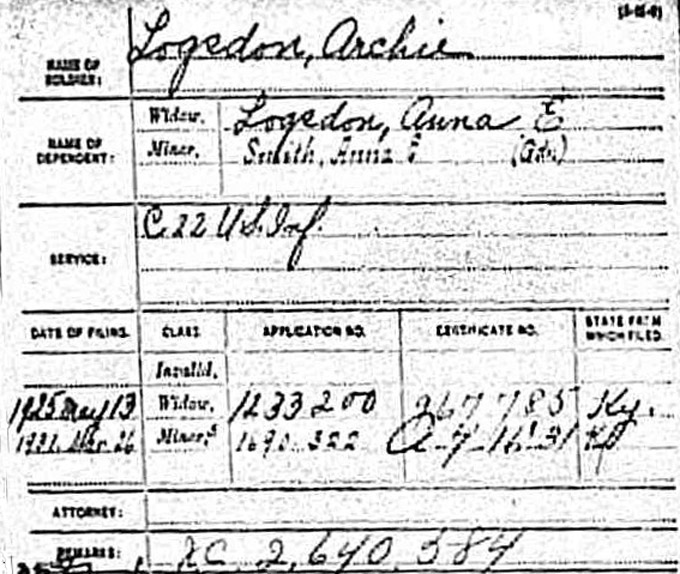 Logsdon, Archie
NAME OF
SOLDIER:
NAME OF
DEPENDENT:
Widow, Logsdon, Anna E
Minor, Smith, Anna E (Gdn)
SERVICE:
C. 22 U.S. Inf.
DATE OF FILING. CLASS. APPLICATION NO. CERTIFICATE NO. STATE FROM
WHICH FILED.
Invalid,
1925 May 13 Widow, 1233200 Ky.
Minor, 1690 322
ATTORNEY:
REMARKS: XC 2,640,584